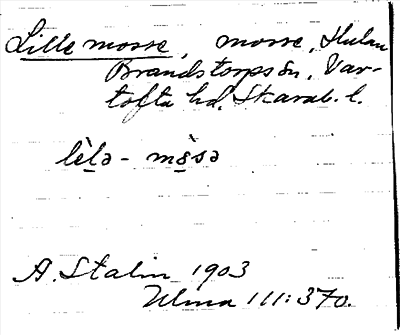 Lille mosse, mosse, Hulan
Brandstorps sn, Var-
tofta hd, Skarab. l.
lèlə - mòsə
A. Stalin 1903
Ulma 111:370.